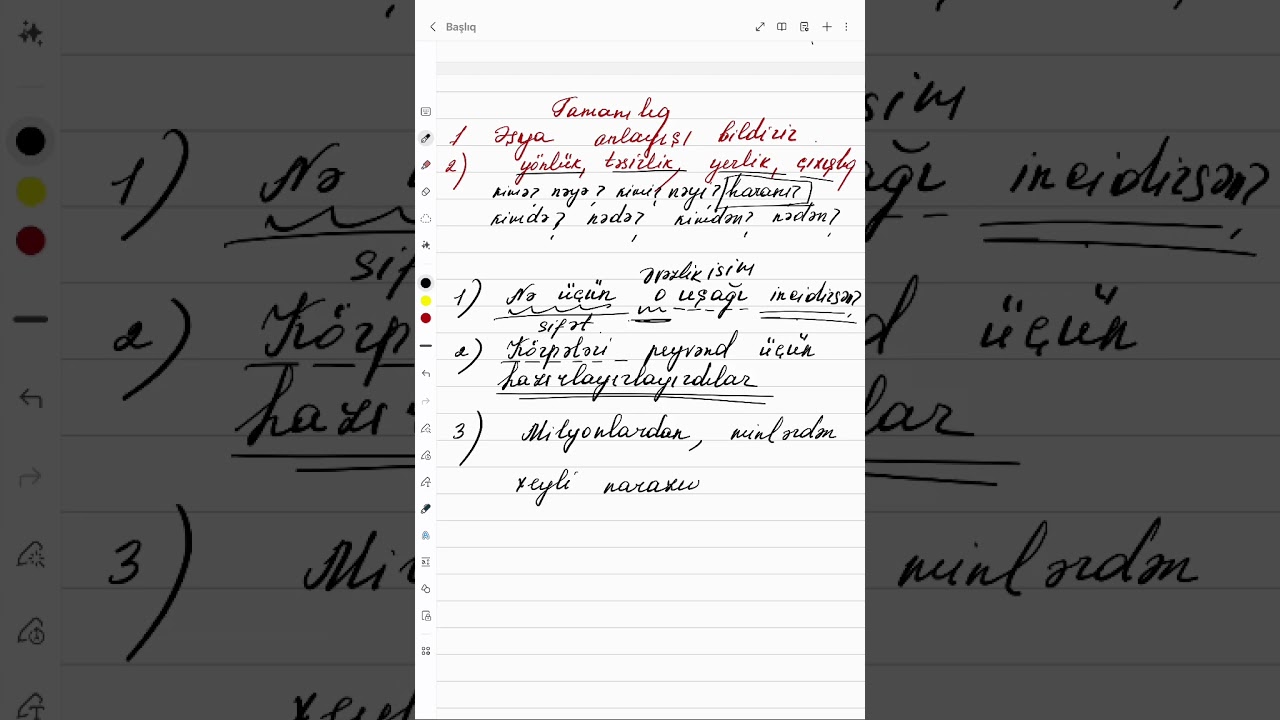 Başlıq
Tamamlıq
1 Əşya anlayışı bildirir.
2) yönlük, təsirlik, yerlik, çıxışlıq
kimə? nəyə? kimi? nəyi? haranı?
kimdə? nədə? kimdən? nədən?
əvəzlik isim
1) Nə üçün o uşağı incidirsən?
sifət
2) Körpələri peyvənd üçün
hazırlayırlayırdılar
3) Milyonlardan, minlərdən
xeyli